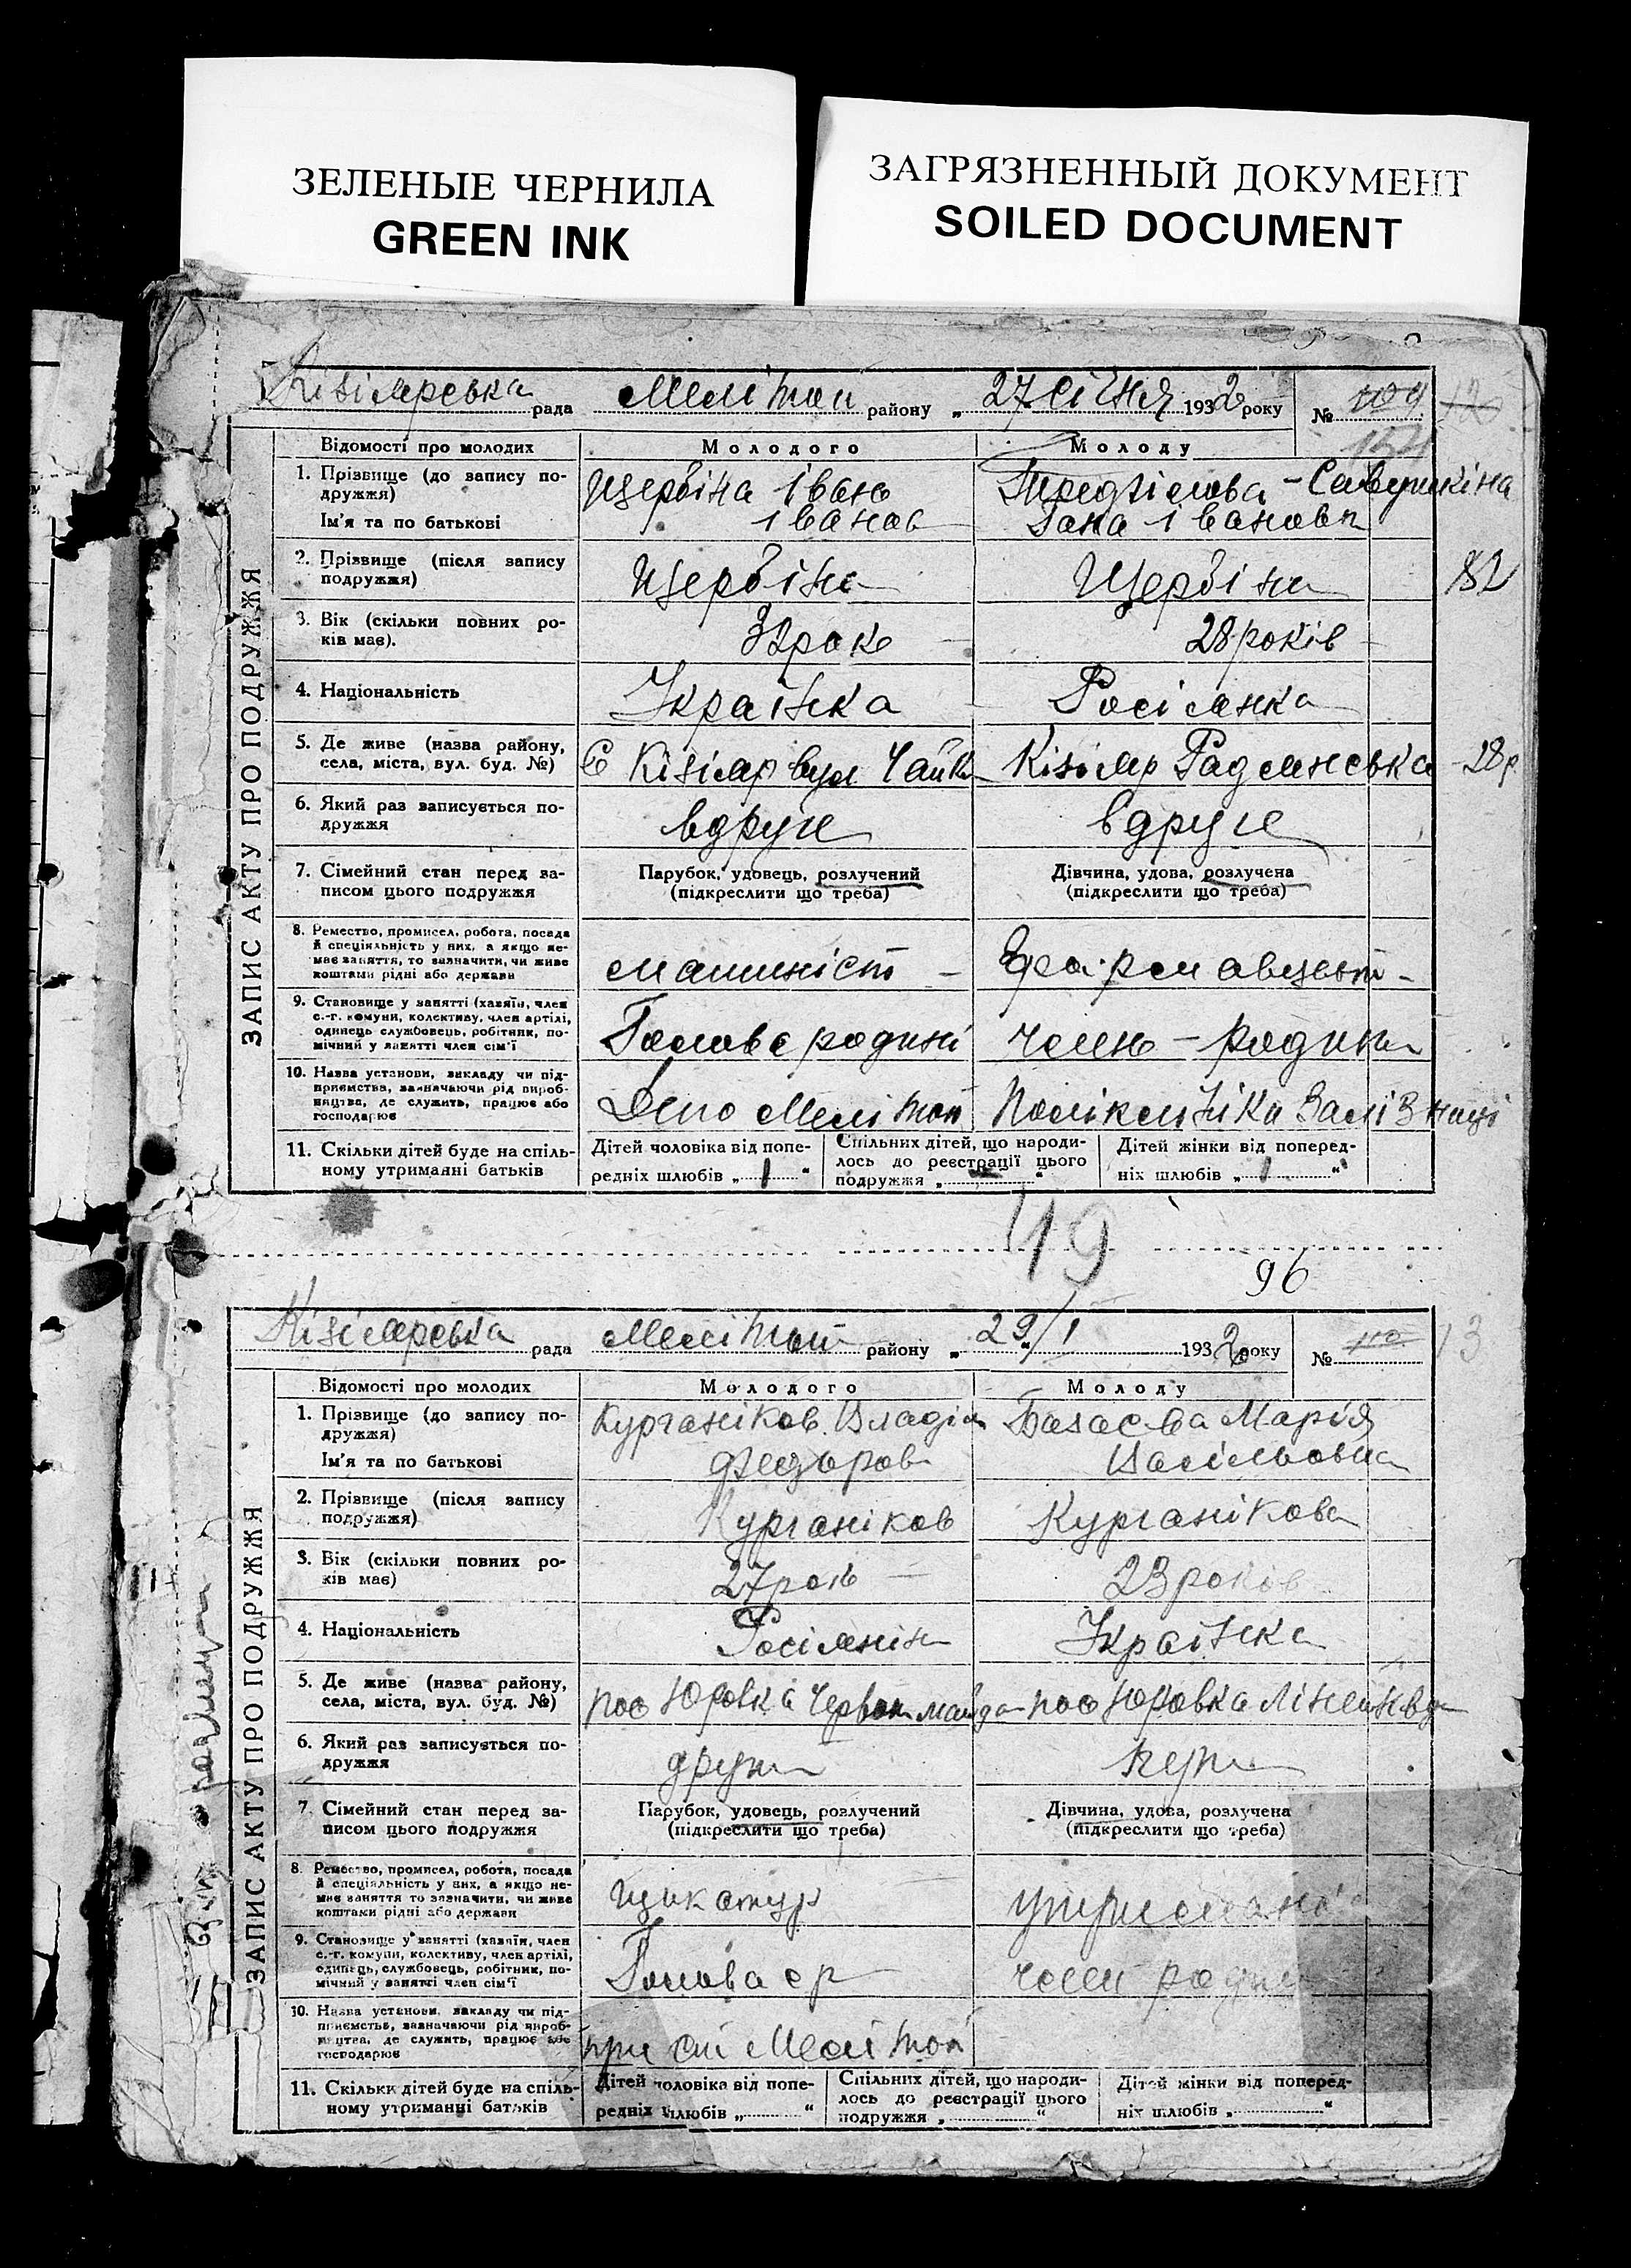 ЗЕЛЕНЫЕ ЧЕРНИЛА
GREEN INK
ЗАГРЯЗНЕННЫЙ ДОКУМЕНТ
SOILED DOCUMENT
Кізіярська рада Мелітоп району „ 27 Січня 1932 року № 109
154
ЗАПИС АКТУ ПРО ПОДРУЖЖЯ
Відомості про молодих Молодого Молоду
1. Прізвище (до запису по-
дружжя)
Ім'я та по батькові
Щербіна Іван
Іванов
Савушкіна
Івановн
2. Прізвище (після запису
подружжя)
Щербіна Щербіна 82
3. Вік (скільки повних ро-
ків має).
32 роке 28 років
4. Національність Українка Росіянка
5. Де живе (назва району,
села, міста, вул. буд. №)
С Кізіяр вул Чайк Кізіяр Радянська - 28 р
6. Який раз записується по-
дружжя
вдруге вдруге
7. Сімейний стан перед за-
писом цього подружжя
Парубок, удовець, розлучений
(підкреслити що треба)
Дівчина, удова, розлучена
(підкреслити що треба)
8. Ремество, промисел, робота, посада
й спеціяльність у них, а якщо не-
має заняття, то зазначити, чи живе
коштами рідні або держави
машиніст –
9. Становище у занятті (хазяїн, член
с.-г. комуни, колективу, член артілі,
одинець службовець, робітник, по-
мічний у занятті член сім'ї
Голова родині член – родини
10. Назва установи, закладу чи під-
приємства, зазначаючи рід вироб-
ництва, де служить, працює або
господарює
Депо Мелітоп Поліклініка Залізниці
11. Скільки дітей буде на спіль-
ному утриманні батьків
Дітей чоловіка від попе-
редніх шлюбів „ 1 “
Спільних дітей, що народи-
лось до реєстрації цього
подружжя „ – “
Дітей жінки від поперед-
ніх шлюбів „ 1 “
49
96
Кізіярська рада Мелітоп району „ 29/I 1932 року № 110 13
ЗАПИС АКТУ ПРО ПОДРУЖЖЯ
Відомості про молодих Молодого Молоду
1. Прізвище (до запису по-
дружжя)
Ім'я та по батькові
Курганіков Владім
Федоров
Марія
Васільовна
2. Прізвище (після запису
подружжя)
Курганіков Курганікова
3. Вік (скільки повних ро-
ків має)
27 рок 23 років
4. Національність Росіянін Українка
5. Де живе (назва району,
села, міста, вул. буд. №)
пос Юровка Червон майдан пос Юровка
6. Який раз записується по-
дружжя
7. Сімейний стан перед за-
писом цього подружжя
Парубок, удовець, розлучений
(підкреслити що треба)
Дівчина, удова, розлучена
(підкреслити що треба)
8. Ремество, промисел, робота, посада
й спеціяльність у них, а якщо не-
має заняття то зазначити, чи живе
коштами рідні або держави
щикатур
9. Становище у занятті (хазяїн, член
с.-г. комуни, колективу, член артілі,
одинець, службовець, робітник, по-
мічний у занятті член сім'ї
Голова с р член родин
10. Назва установи, закладу чи під-
приємства, зазначаючи рід вироб-
ництва, де служить, працює або
господарює
при ст Мелітоп
11. Скільки дітей буде на спіль-
ному утриманні батьків
Дітей чоловіка від попе-
редніх шлюбів „ “
Спільних дітей, що народи-
лось до реєстрації цього
подружжя „ “
Дітей жінки від поперед-
ніх шлюбів „ “